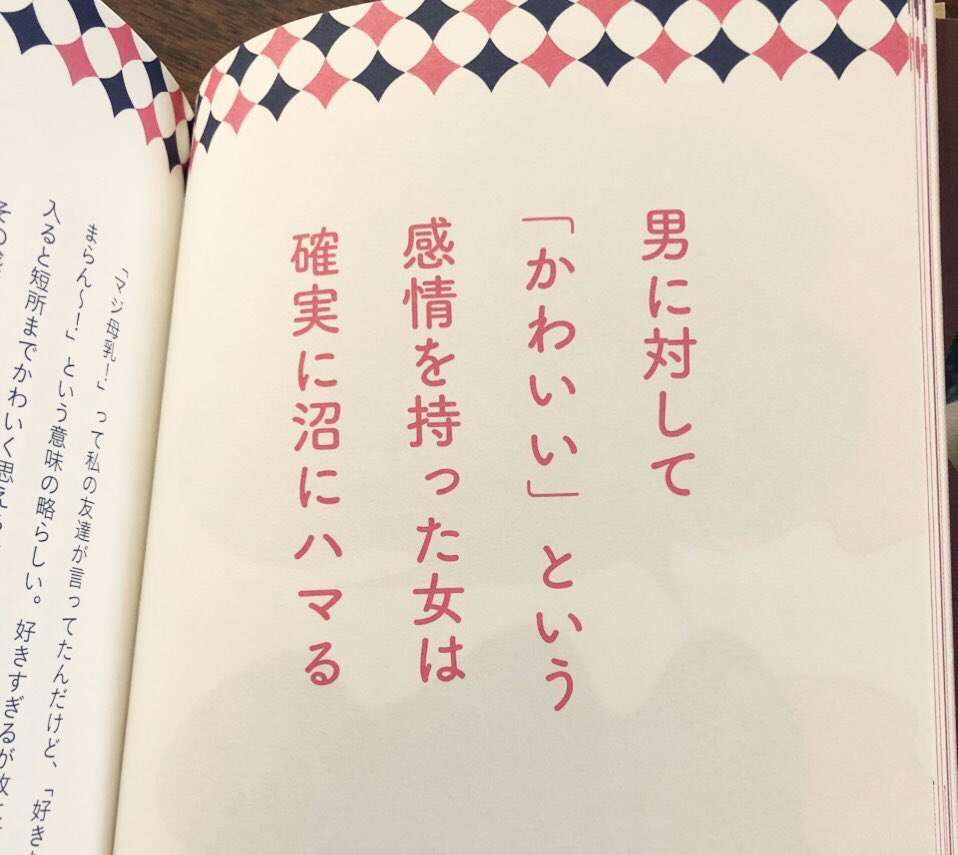 男に対して
「かわいい」という
感情を持った女は
確実に沼にハマる
「マジ母乳ー！」って私の友達が言ってたんだけど、「好き
まらん〜！」という意味の略らしい。好きすぎるが故に
入ると短所までかわいく思える